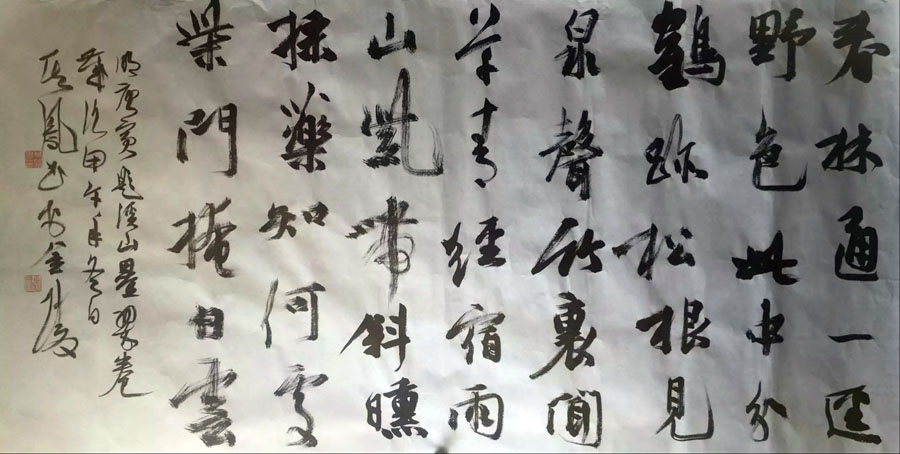 春林通一逕
野色此中分
鶴跡松根見
泉聲竹裏聞
草青經宿雨
山紫帶斜曛
採藥知何處
柴門掩白雲
明唐寅題溪山疊翠卷
歲次甲午年冬日
鳳書於金陵